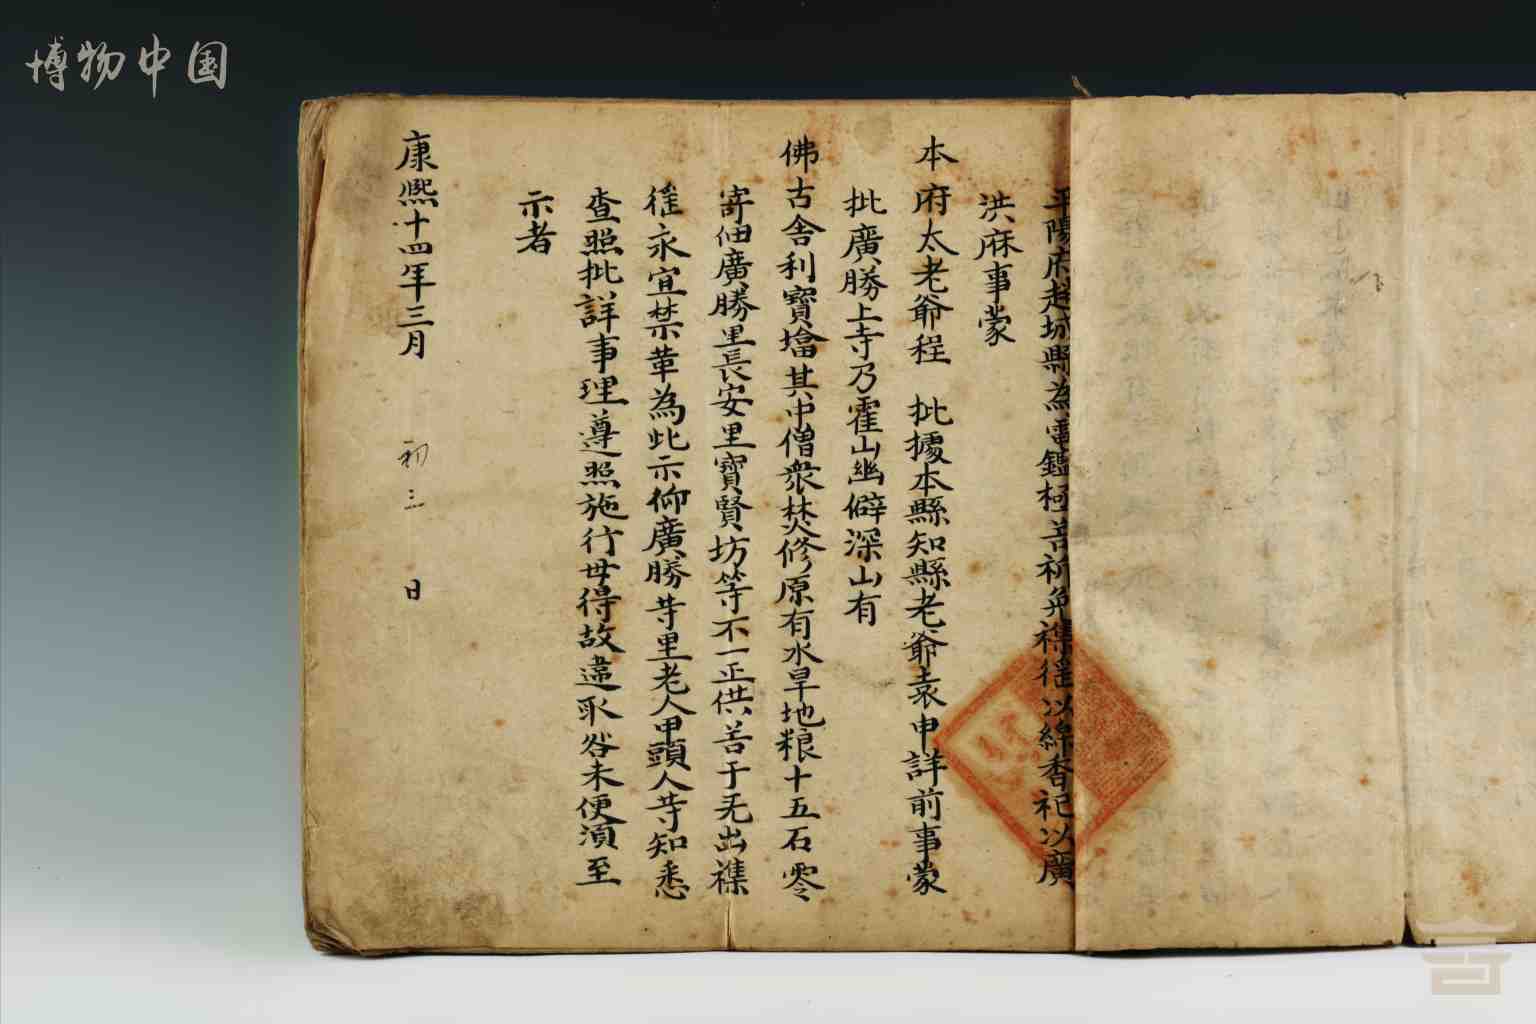 博物中国
平陽府趙城縣為電鑑極苦祈免襍徭以綿香祀以廣
洪庥事蒙
本府太老爺程 批據本縣知縣老爺袁申詳前事蒙
批廣勝上寺乃霍山幽僻深山有
佛古舍利寶墖其中僧衆焚修原有水旱地粮十五石零
寄佃廣勝里長安里寶賢坊等不一正供苦于无出襍
徭永宜禁革為此示仰廣勝寺里老人甲頭人等知悉
查照批詳事理遵照施行毋得故違取咎未便須至
示者
康熙十四年三月 初三 日